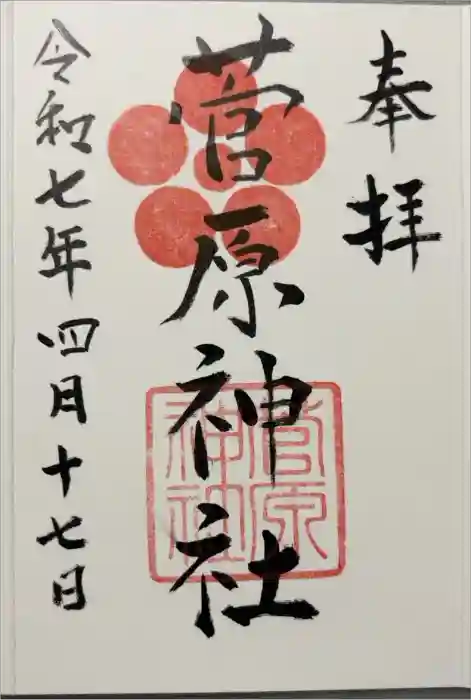 奉拝
菅原神社
菅原神社
令和七年四月十七日